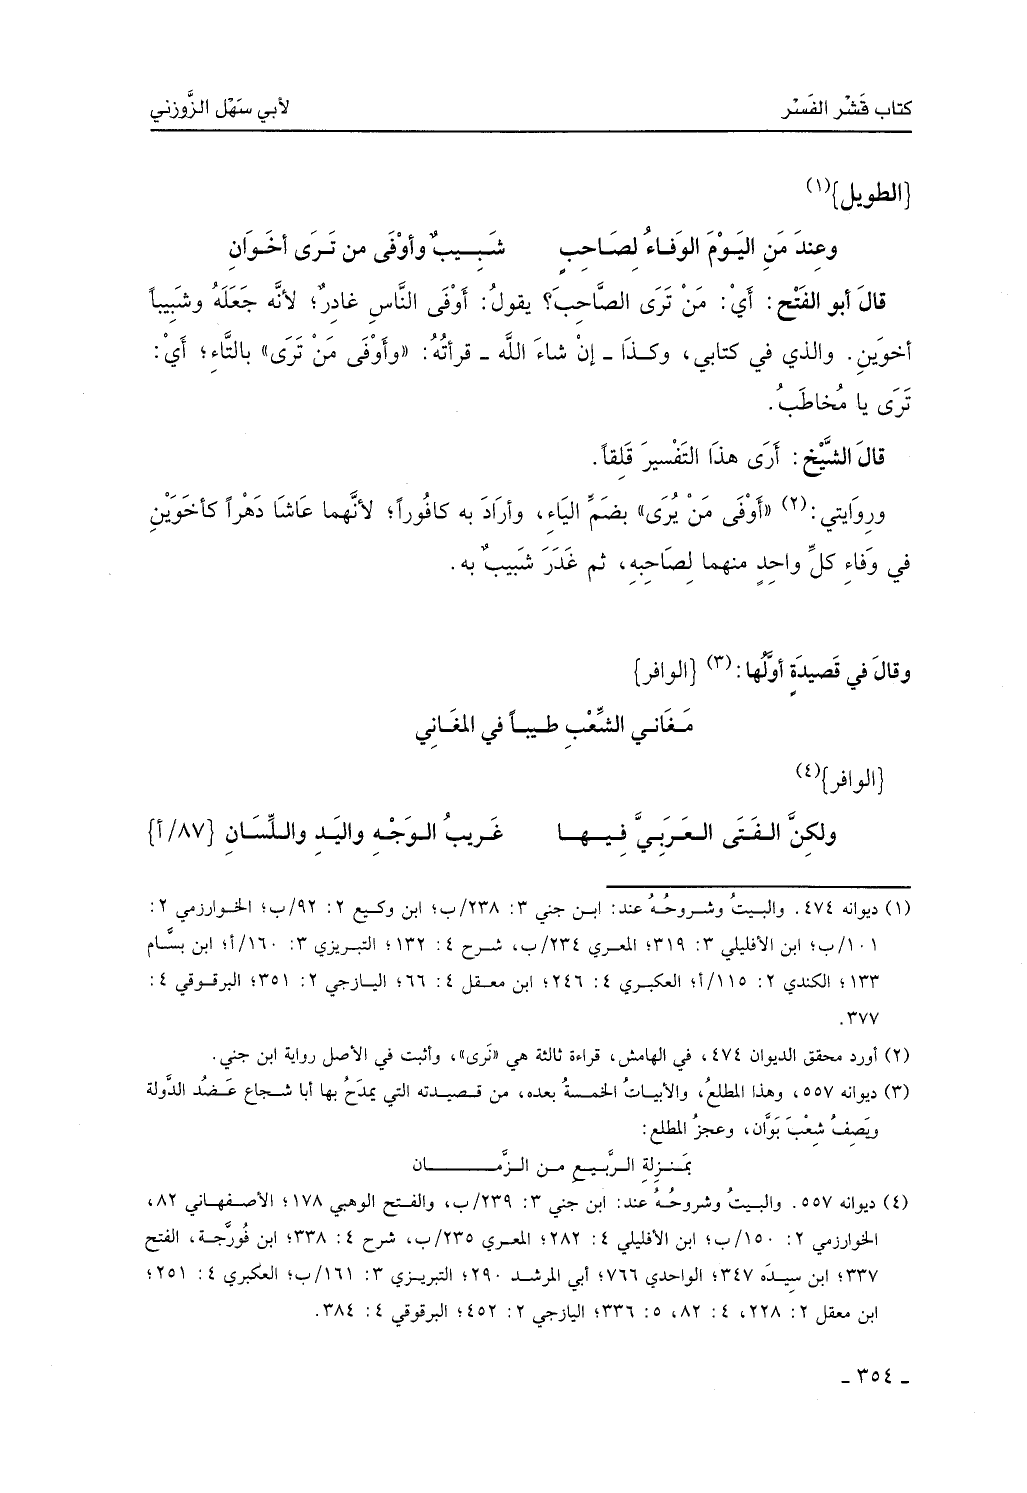 كتاب قَشْر الفَسْر لأبي سَهْل الزَّوزني
{الطويل}(١)
وعِندَ مَنِ اليَوْمَ الوَفَاءُ لصَاحِبٍ شَبِيبٌ وأوْفَى من تَرَى أخَوَانِ
قالَ أبو الفَتْح: أيْ: مَنْ تَرَى الصَّاحبَ؟ يقولُ: أوْفَى النَّاسِ غادِرٌ؛ لأنَّه جَعَلَهُ وشَبِيباً
أخوَينِ. والذي في كتابي، وكذَا ـ إنْ شاءَ اللَّه ـ قرأتُهُ: «وأَوْفَى مَنْ تَرَى» بالتَّاءِ؛ أيْ:
تَرَى يا مُخاطَبُ.
قالَ الشَّيْخ: أرَى هذَا التَفْسيرَ قَلِقاً.
ورِوَايتي:(٢) «أَوْفَى مَنْ يُرَى» بضَمِّ اليَاءِ، وأرَادَ به كافُوراً؛ لأنَّهما عَاشَا دَهْراً كأخَوَيْنِ
في وَفَاءِ كلِّ واحِدٍ منهما لِصَاحبِهِ، ثم غَدَرَ شَبيبٌ به.
وقالَ في قَصيدَةٍ أوَّلُها:(٣) {الوافر}
مَغَاني الشِّعْبِ طيباً في المغَاني
{الوافر}(٤)
ولكِنَّ الفَتَى العَرَبِيَّ فِيها غَرِيبُ الوَجْهِ واليَدِ واللِّسَانِ {٨٧/أ}
(١) ديوانه ٤٧٤. والبيتُ وشروحُهُ عند: ابن جني ٣: ٢٣٨/ب؛ ابن وكيع ٢: ٩٢/ب؛ الخوارزمي ٢:
١٠١/ب؛ ابن الأفليلي ٣: ٣١٩؛ المعري ٢٣٤/ب، شرح ٤: ١٣٢؛ التبريزي ٣: ١٦٠/أ؛ ابن بسَّام
١٣٣؛ الكندي ٢: ١١٥/أ؛ العكبري ٤: ٢٤٦؛ ابن معقل ٤: ٦٦؛ اليازجي ٢: ٣٥١؛ البرقوقي ٤:
٣٧٧.
(٢) أورد محقق الديوان ٤٧٤، في الهامش، قراءة ثالثة هي «نَرى»، وأثبت في الأصل رواية ابن جني.
(٣) ديوانه ٥٥٧، وهذا المطلعُ، والأبياتُ الخمسةُ بعده، من قصيدته التي يمدَحُ بها أبا شجاع عَضُد الدَّولة
ويَصِفُ شِعْبَ بَوَّان، وعجزُ المطلع:
بمَنزِلةِ الرَّبيعِ من الزَّمَان
(٤) ديوانه ٥٥٧. والبيتُ وشروحُهُ عند: ابن جني ٣: ٢٣٩/ب، والفتح الوهبي ١٧٨؛ الأصفهاني ٨٢،
الخوارزمي ٢: ١٥٠/ب؛ ابن الأفليلي ٤: ٢٨٢؛ المعري ٢٣٥/ب، شرح ٤: ٣٣٨؛ ابن فُورَّجة، الفتح
٣٣٧؛ ابن سِيدَه ٣٤٧؛ الواحدي ٧٦٦؛ أبي المرشد ٢٩٠؛ التبريزي ٣: ١٦١/ب؛ العكبري ٤: ٢٥١؛
ابن معقل ٢: ٢٢٨، ٤: ٨٢، ٥: ٣٣٦؛ اليازجي ٢: ٤٥٢؛ البرقوقي ٤: ٣٨٤.
ـ ٣٥٤ ـ